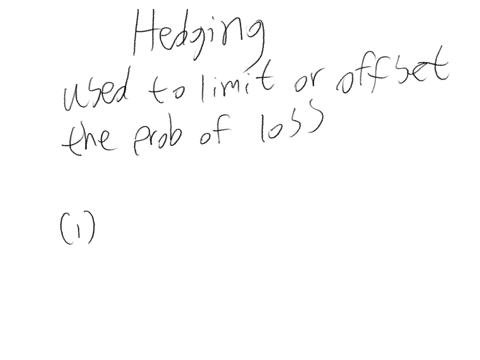 Hedging
used to limit or offset
the prob of loss
(1)